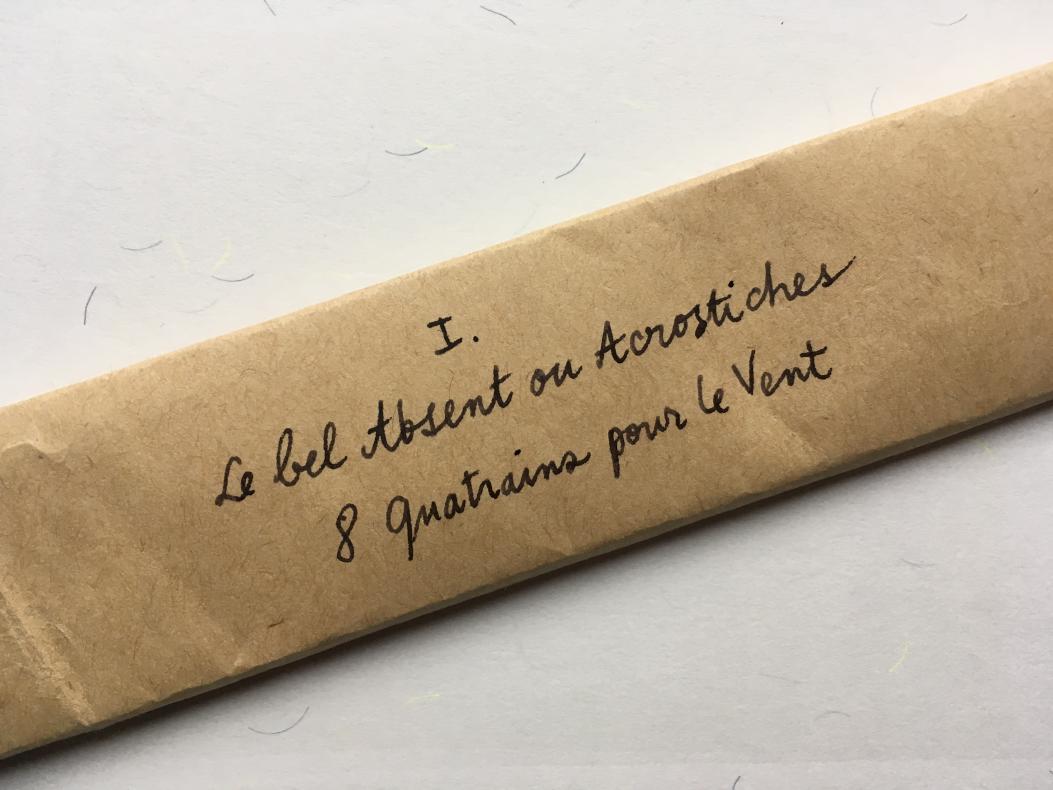 I.
Le bel Absent ou Acrostiches
8 Quatrains pour le Vent